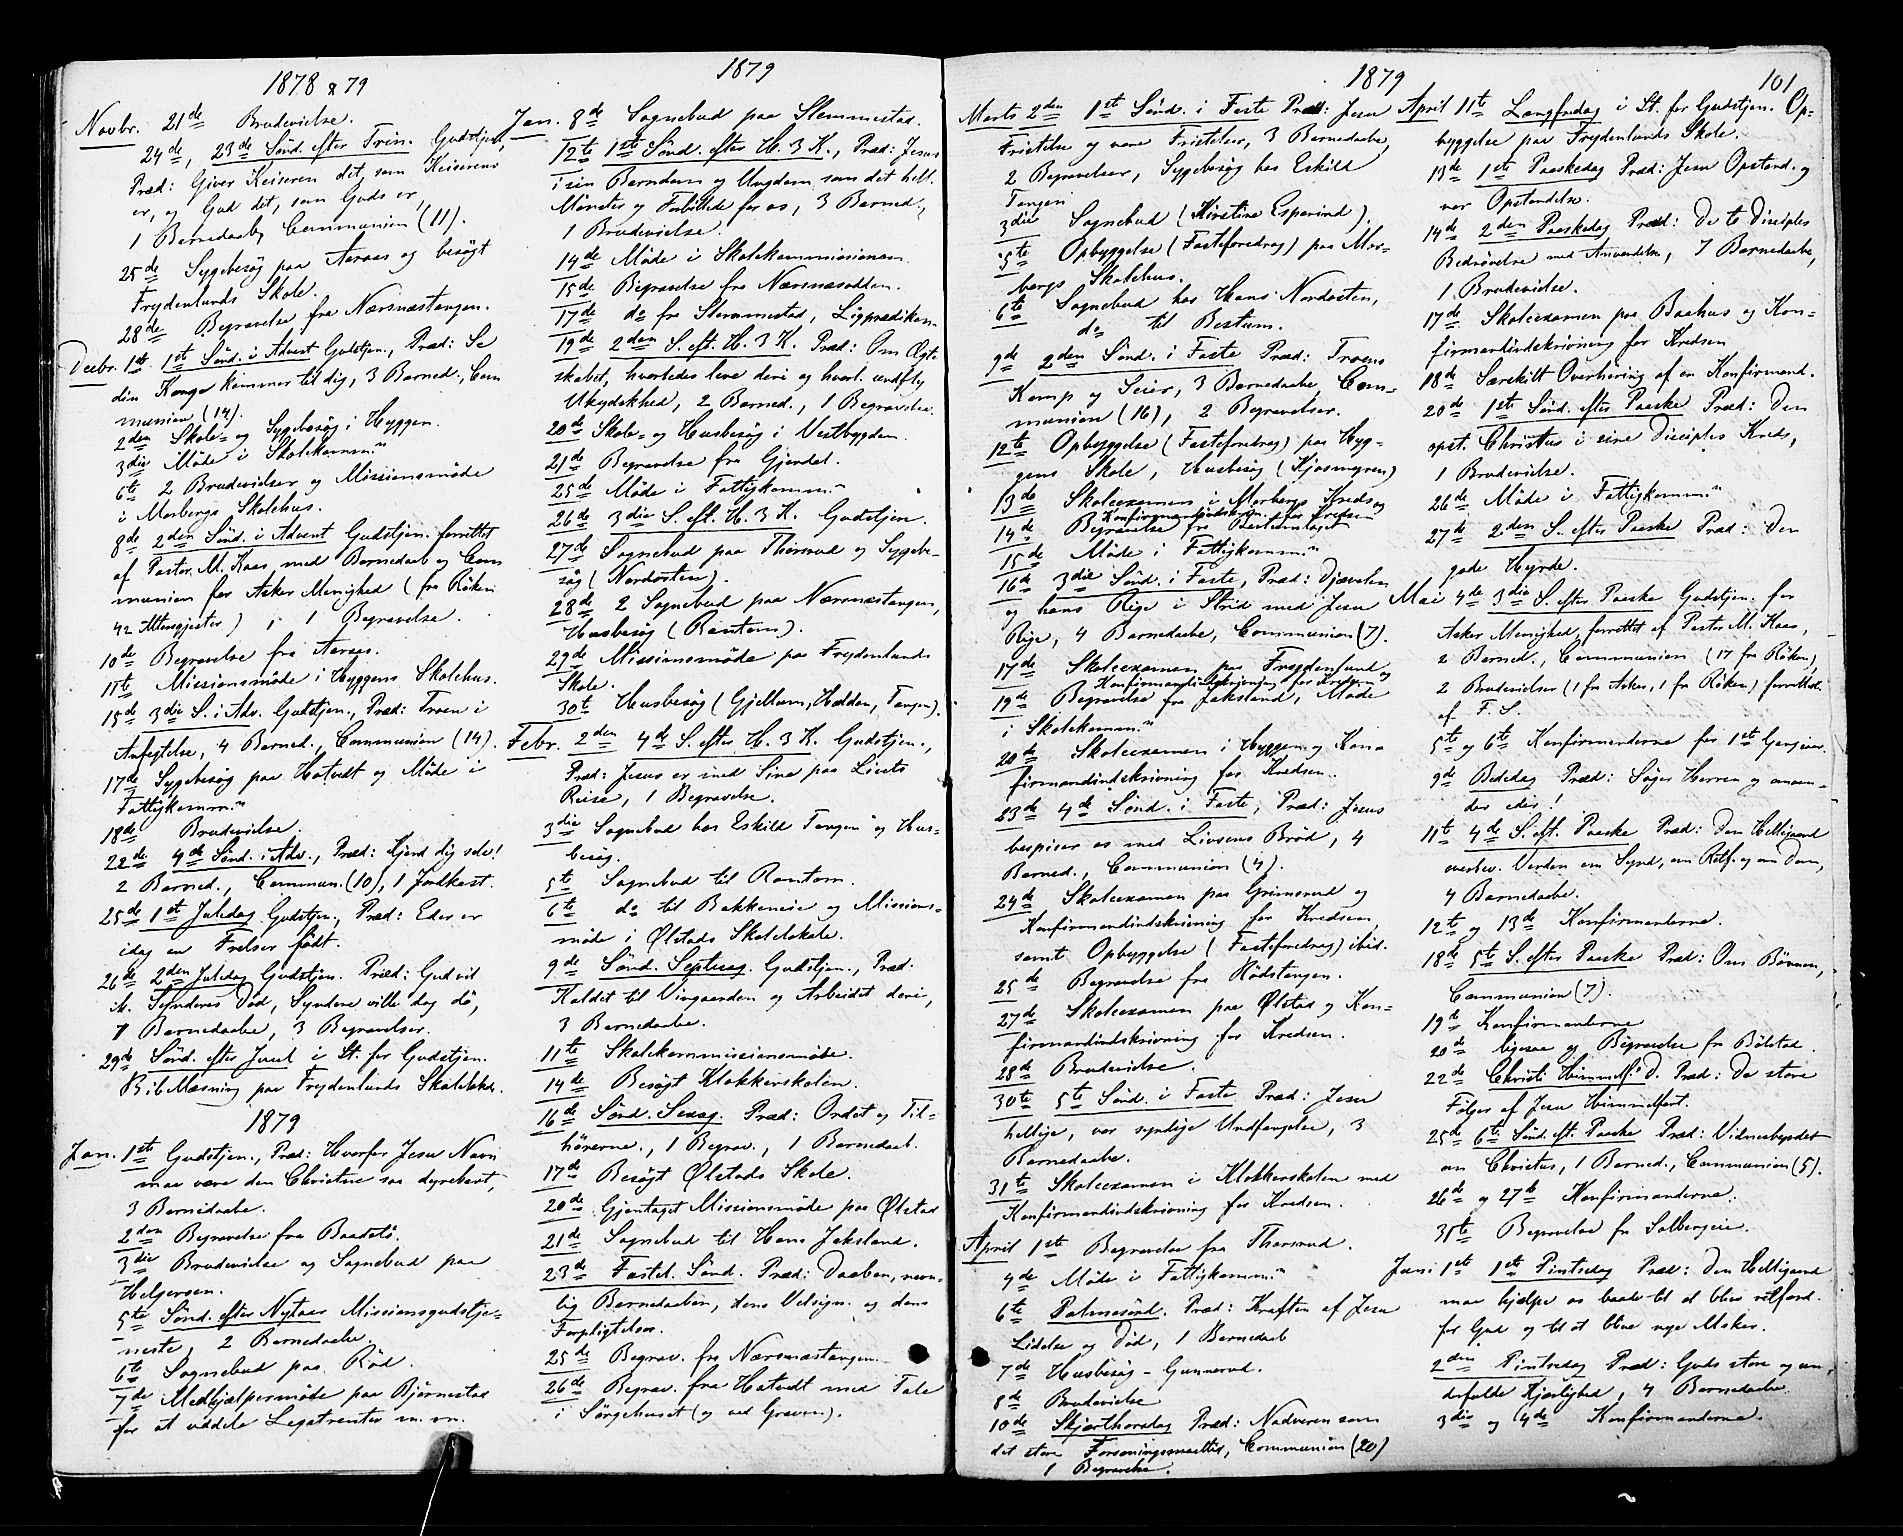 1878 & 79
Novbr. 21de Brudevielse.
24de, 23de Sønd. efter Trin. Gudstjen.
Præd: Giver Keiseren det, som Keiserens
er, og Gud det, som Guds er,
1 Barnedaab, Communion (11).
25de Sygebesøg paa Aaraas og besøgt
Frydenlunds Skole.
28de Begravelse fra Nærsnæstangen.
Decbr. 1ste 1ste Sønd. i Advent Gudstjen., Præd: Se
din Konge kommer til dig, 3 Barned., Com
munion (14).
2den Skole- og Sygebesøg i Hyggen.
3die Møde i Skolekomm:n
6te 2 Brudevielser og Missionsmøde
i Morbergs Skolehus.
8de 2den Sønd. i Advent Gudstjen. forrettet
af Pastor M. Kaas med Barnedaab og Com
munion for Asker Menighed (fra Røken
42 Altergjester), 1 Begravelse.
10de Begravelse fra Aaraas.
11te Missionsmøde i Hyggens Skolehus.
15de 3die S. i Adv. Gudstjen., Præd: Troen i
Anfegtelse, 4 Barned., Communion (14).
17de Sygebesøg paa Hotvedt og Møde i
Fattigkomm:n
18de Brudevielse.
22de 4de Sønd. i Adv., Præd: Kjend dig selv!
2 Barned., Commun. (10), 1 Jordkast.
25de 1ste Juledag Gudstjen., Præd: Eder er
idag en Frelser født.
26de 2den Juledag Gudstjen. Præd: Gud vil
ik. Synderes Død, Syndere ville dog dø,
7 Barnedaabe, 3 Begravelser.
29de Sønd. efter Juul i St. for Gudstjen.
Bibellæsning paa Frydenlunds Skolelokale.
1879
Jan. 1ste Gudstjen., Præd: Hvorfor Jesu Navn
maa være den Christne saa dyrebart,
3 Barnedaabe.
2den Begravelse fra Baadstø.
3die Brudevielse og Sognebud paa
Helgersen.
5te Sønd. efter Nytaar Missionsgudstje-
neste, 2 Barnedaabe.
6te Sognebud paa Rød.
7de Medhjælpermøde paa Bjørnestad
for at uddele Legatrenter m. m.
1879
Jan. 8de Sognebud paa Slemmestad.
12te 1ste Sønd. efter H. 3 K., Præd: Jesus
i sin Barndom og Ungdom som det hell.
Mønster og Forbillede for os, 3 Barned.,
1 Brudevielse.
14de Møde i Skolekommissionen.
15de Begravelse fra Nærsnæsodden.
17de do fra Slemmestad, Ligprædiken.
19de 2den S. eft. H. 3 K. Præd: Om Ægte-
skabet, hvorledes leve deri og hvorl. undfly
Ukydskhed, 2 Barned., 1 Begravelse.
20de Skole- og Husbesøg i Vestbygden.
21de Begravelse fra Gjerdal.
25de Møde i Fattigkomm:n
26de 3die S. eft. H. 3 K. Gudstjen.
27de Sognebud paa Thorsrud og Sygebe-
søg (Nordosten).
28de 2 Sognebud paa Nærsnæstangen,
Husbesøg (Rontom).
29de Missionsmøde paa Frydenlunds
Skole.
30te Husbesøg (Gjellum, Hødden, Tangen).
Febr. 2den 4de S. efter H. 3 K. Gudstjen.,
Præd: Jesus er med Sine paa Livets
Reise, 1 Begravelse.
3die Sognebud hos Eskild Tangen og Hus-
besøg.
5te Sognebud til Rontom.
6te do til Bakkeneie og Missions-
møde i Ølstads Skolelokale.
9de Sønd. Septuag. Gudstjen., Præd.
Kaldet til Vingaarden og Arbeidet deri,
3 Barnedaabe.
11te Skolekommissionsmøde.
14de Besøgt Klokkerskolen.
16de Sønd. Sexag. Præd: Ordet og Til-
hørerne, 1 Begrav., 1 Barnedaab.
17de Besøgt Ølstads Skole.
20de Gjentaget Missionsmøde paa Ølstad
21de Sognebud til Hans Jaksland.
23de Fastel. Sønd. Præd: Daaben, navn-
lig Barnedaaben, dens Velsign. og dens
Forpligtelser.
25de Begrav. fra Nærsnæstangen.
26de Begrav. fra Hotvedt med Tale
i Sørgehuset (og ved Graven).
1879
Marts 2den 1ste Sønd. i Faste Præd: Jesu
Fristelse og vore Fristelser, 3 Barnedaabe,
2 Begravelser, Sygebesøg hos Eskild
Tangen
3die Sognebud (Kirstine Esperind).
5te Opbyggelse (Fasteforedrag) paa Mor-
bergs Skolehus.
6te Sognebud hos Hans Nordosten,
do til Bestum.
9de 2den Sønd. i Faste Præd: Troens
Kamp og Seier, 3 Barnedaabe, Com-
munion (16), 2 Begravelser.
12te Opbyggelse (Fasteforedrag) paa Hyg-
gens Skole, Husbesøg (Kjosmyren)
13de Skoleexamen i Morbergs Kreds og
Konfirmandindskrivn. for Kredsen
14de Begravelse fra
15de Møde i Fattigkomm:n
16de 3die Sønd. i Faste, Præd: Djævelen
og hans Rige i Strid med Jesu
Rige, 4 Barnedaabe, Communion (7).
17de Skoleexamen paa Frydenlund og
Konfirmandindskrivning for Kredsen
19de Begravelse fra Jaksland, Møde
i Skolekomm:n
20de Skoleexamen i Hyggen og Kon-
firmandindskrivning for Kredsen.
23de 4de Sønd. i Faste, Præd: Jesus
bespiser os med Livsens Brød, 4
Barned., Communion (4).
24de Skoleexamen paa Grimsrud og
Konfirmandindskrivning for Kredsen,
samt Opbyggelse (Fasteforedrag) ibid.
25de Begravelse fra Rødstangen.
27de Skoleexamen paa Ølstad og Kon-
firmandindskrivning for Kredsen.
28de Brudevielse.
30te 5te Sønd. i Faste Præd: Jesu
hellige, vor syndige Undfangelse, 3
Barnedaabe.
31te Skoleexamen i Klokkerskolen med
Konfirmandindskrivning for Kredsen.
April 1ste Begravelse fra Thorsrud.
4de Møde i Fattigkomm:n
6te Palmesønd. Præd: Kraften af Jesu
Lidelse og Død, 1 Barnedaab
7de Husbesøg – Gunnerud.
8de Brudevielse
10de Skjærthorsdag Præd: Nadveren som
det store Forsoningsmaaltid, Communion (20)
1 Begravelse.
101
April 11te Langfredag i St. for Gudstjen. Op-
byggelse paa Frydenlunds Skole.
13de 1ste Paaskedag Præd: Jesu Opstand. og
vor Opstandelse.
14de 2den Paaskedag Præd: De to Disciples
Bedrøvelse med Anvendelse, 7 Barnedaabe,
1 Brudevielse.
17de Skoleexamen paa Baahus og Kon-
firmandindskrivning for Kredsen
18de Særskilt Overhøring af en Konfirmand.
20de 1ste Sønd. efter Paaske Præd: Den
opst. Christus i sine Disciples Kreds,
1 Brudevielse.
26de Møde i Fattigkomm:n
27de 2den S. efter Paaske Præd: Den
gode Hyrde.
Mai 4de 3die S. efter Paaske Gudstjen. for
Asker Menighed, forrettet af Pastor M. Kaas,
2 Barned., Communion (17 fra Røken),
2 Brudevielser (1 fra Asker, 1 fra Røken) forrettet
af F. S.
5te og 6te Konfirmanderne for 1ste Gang
9de Bededag Præd: Søger Herren og omven-
der eder!
11te 4de S. eft. Paaske Præd: Den Helligaand
overbev. Verden om Synd, om Retf. og om Dom,
4 Barnedaabe.
12te og 13de Konfirmanderne.
18de 5te S. efter Paaske Præd: Om Bønnen,
Communion (7).
19de Konfirmanderne
20de ligesaa og Begravelse fra Bølstad.
22de Christi Himmelf. D. Præd: De store
Følger af Jesu Himmelfart.
25de 6te Sønd. eft. Paaske Præd: Vidnesbyrdet
om Christus, 1 Barned., Communion (5).
26de og 27de Konfirmanderne.
31te Begravelse fra Solbergeie.
Juni 1ste 1ste Pintsedag Præd: Den Helligaand
maa hjælpe os baade til at blive retfærd.
for Gud og til at blive nye Msker.
2den Pintsedag Præd: Guds store og un-
derfulde Kjærlighed, 4 Barnedaabe.
3die og 4de Konfirmanderne.